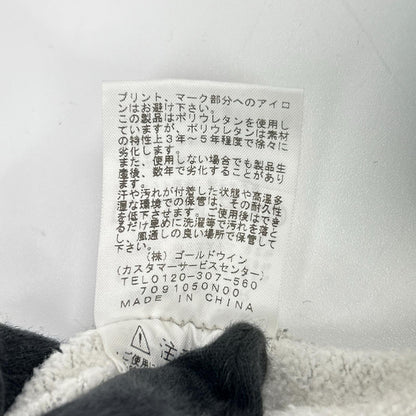 プリント、マーク部分へのアイロ
ンはお避け下さい。
この製品はポリウレタンを使用し
ていますが、ポリウレタンは素材
の特性上3年〜5年程度で徐々に
劣化します。
また、使用しない場合でも製品生
産後、数年で劣化することがあり
ます。
汗や汚れが付着した状態や高温多
湿な環境での保管は、その耐久性
を低下させます。ご使用後はできる
だけ早めに洗濯等で汚れを落と
し、風通しの良い場所で保管して下
さい。
(株) ゴールドウイン
(カスタマーサービスセンター)
TEL0120-307-560
7091050N00
MADE IN CHINA
注
ご使用